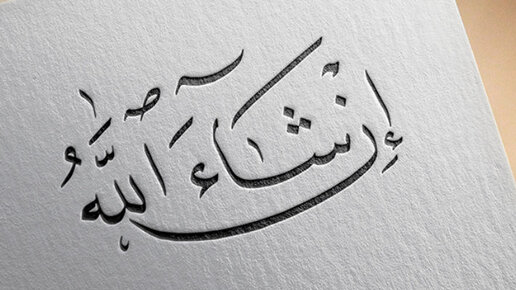 إن شَاءَ اللَّهُ